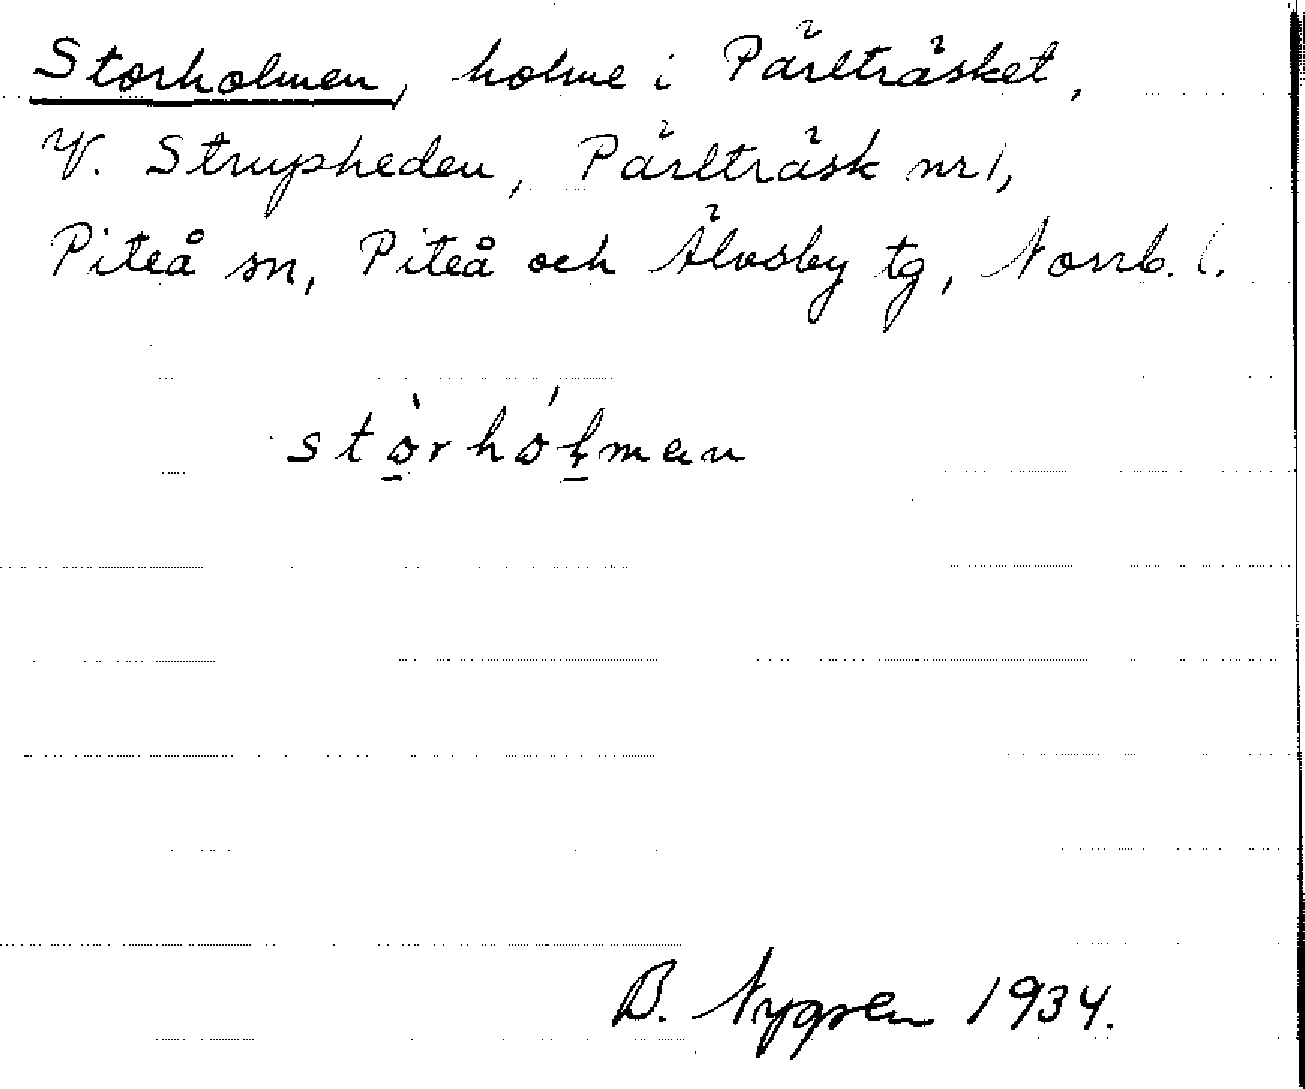 Storholmen, holme i Pärlträsket,
V. Strupheden, Pärlträsk nr 1,
Piteå sn, Piteå och Älvsby tg, Norrb. l.
stò̠rhóḷ̠man
B. Nygren 1934.